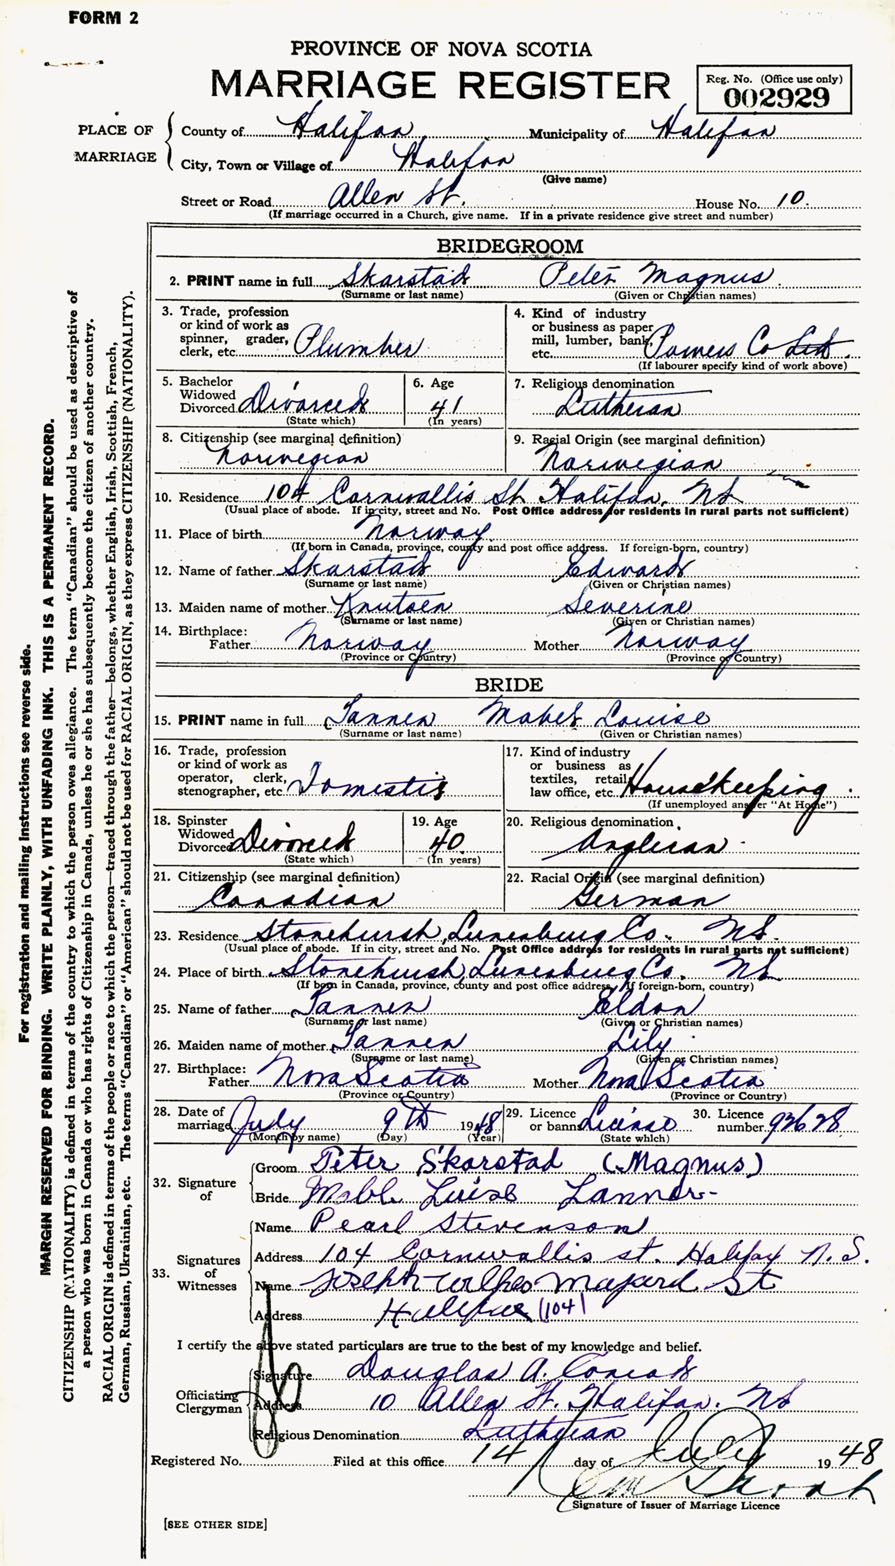 FORM 2
PROVINCE OF NOVA SCOTIA
MARRIAGE REGISTER
Reg. No. (Office use only)
002929
PLACE OF MARRIAGE
County of Halifax Municipality of Halifax
City, Town or Village of Halifax
(Give name)
Street or Road Allen St. House No. 10.
(If marriage occurred in a Church, give name. If in a private residence give street and number)
BRIDEGROOM
2. PRINT name in full Skarstad Peter Magnus.
(Surname or last name) (Given or Christian names)
3. Trade, profession or kind of work as spinner, grader, clerk, etc. Plumber
4. Kind of industry or business as paper mill, lumber, bank, etc. Powers Co Ltd.
(If labourer specify kind of work above)
5. Bachelor Widowed Divorced Divorced
(State which)
6. Age 41
(In years)
7. Religious denomination Lutheran
8. Citizenship (see marginal definition) Norwegian
9. Racial Origin (see marginal definition) Norwegian
10. Residence 104 Cornwallis St. Halifax, NS
(Usual place of abode. If in city, street and No. Post Office address for residents in rural parts not sufficient)
11. Place of birth Norway.
(If born in Canada, province, county and post office address. If foreign-born, country)
12. Name of father Skarstad Edward
(Surname or last name) (Given or Christian names)
13. Maiden name of mother Knutsen Severine
(Surname or last name) (Given or Christian names)
14. Birthplace: Father Norway Mother Norway
(Province or Country) (Province or Country)
BRIDE
15. PRINT name in full Tanner Mabel Louise
(Surname or last name) (Given or Christian names)
16. Trade, profession or kind of work as operator, clerk, stenographer, etc. Domestic
17. Kind of industry or business as textiles, retail, law office, etc. Housekeeping.
(If unemployed answer "At Home")
18. Spinster Widowed Divorced Divorced
(State which)
19. Age 40
(In years)
20. Religious denomination. Anglican
21. Citizenship (see marginal definition) Canadian
22. Racial Origin (see marginal definition) German
23. Residence Stonehurst, Lunenburg Co. NS.
(Usual place of abode. If in city, street and No. Post Office address for residents in rural parts not sufficient)
24. Place of birth Stonehurst, Lunenburg Co. NS
(If born in Canada, province, county and post office address. If foreign-born, country)
25. Name of father Tanner Eldon
(Surname or last name) (Given or Christian names)
26. Maiden name of mother Tanner Lily
(Surname or last name) (Given or Christian names)
27. Birthplace: Father Nova Scotia Mother Nova Scotia
(Province or Country) (Province or Country)
28. Date of marriage July 9th 1948
(Month by name) (Day) (Year)
29. Licence or banns License
(State which)
30. Licence number 92628
32. Signature of
Groom Peter Skarstad (Magnus)
Bride Mable Luise Tanner
33. Signatures of Witnesses
Name Pearl Stevenson
Address 104 Cornwallis st. Halifax N.S.
Name Joseph Mayard St
Address Halifax (104)
I certify the above stated particulars are true to the best of my knowledge and belief.
Officiating Clergyman
Signature Douglas A. Conrad
Address 10 Allen St. Halifax. NS
Religious Denomination Lutheran
Registered No. Filed at this office 14 day of July 1948
Signature of Issuer of Marriage Licence
[SEE OTHER SIDE]
For registration and mailing instructions see reverse side.
MARGIN RESERVED FOR BINDING. WRITE PLAINLY, WITH UNFADING INK. THIS IS A PERMANENT RECORD.
CITIZENSHIP (NATIONALITY) is defined in terms of the country to which the person owes allegiance. The term "Canadian" should be used as descriptive of
a person who was born in Canada or who has rights of Citizenship in Canada, unless he or she has subsequently become the citizen of another country.
RACIAL ORIGIN is defined in terms of the people or race to which the person—traced through the father—belongs, whether English, Irish, Scottish, French,
German, Russian, Ukrainian, etc. The terms "Canadian" or "American" should not be used for RACIAL ORIGIN, as they express CITIZENSHIP (NATIONALITY).